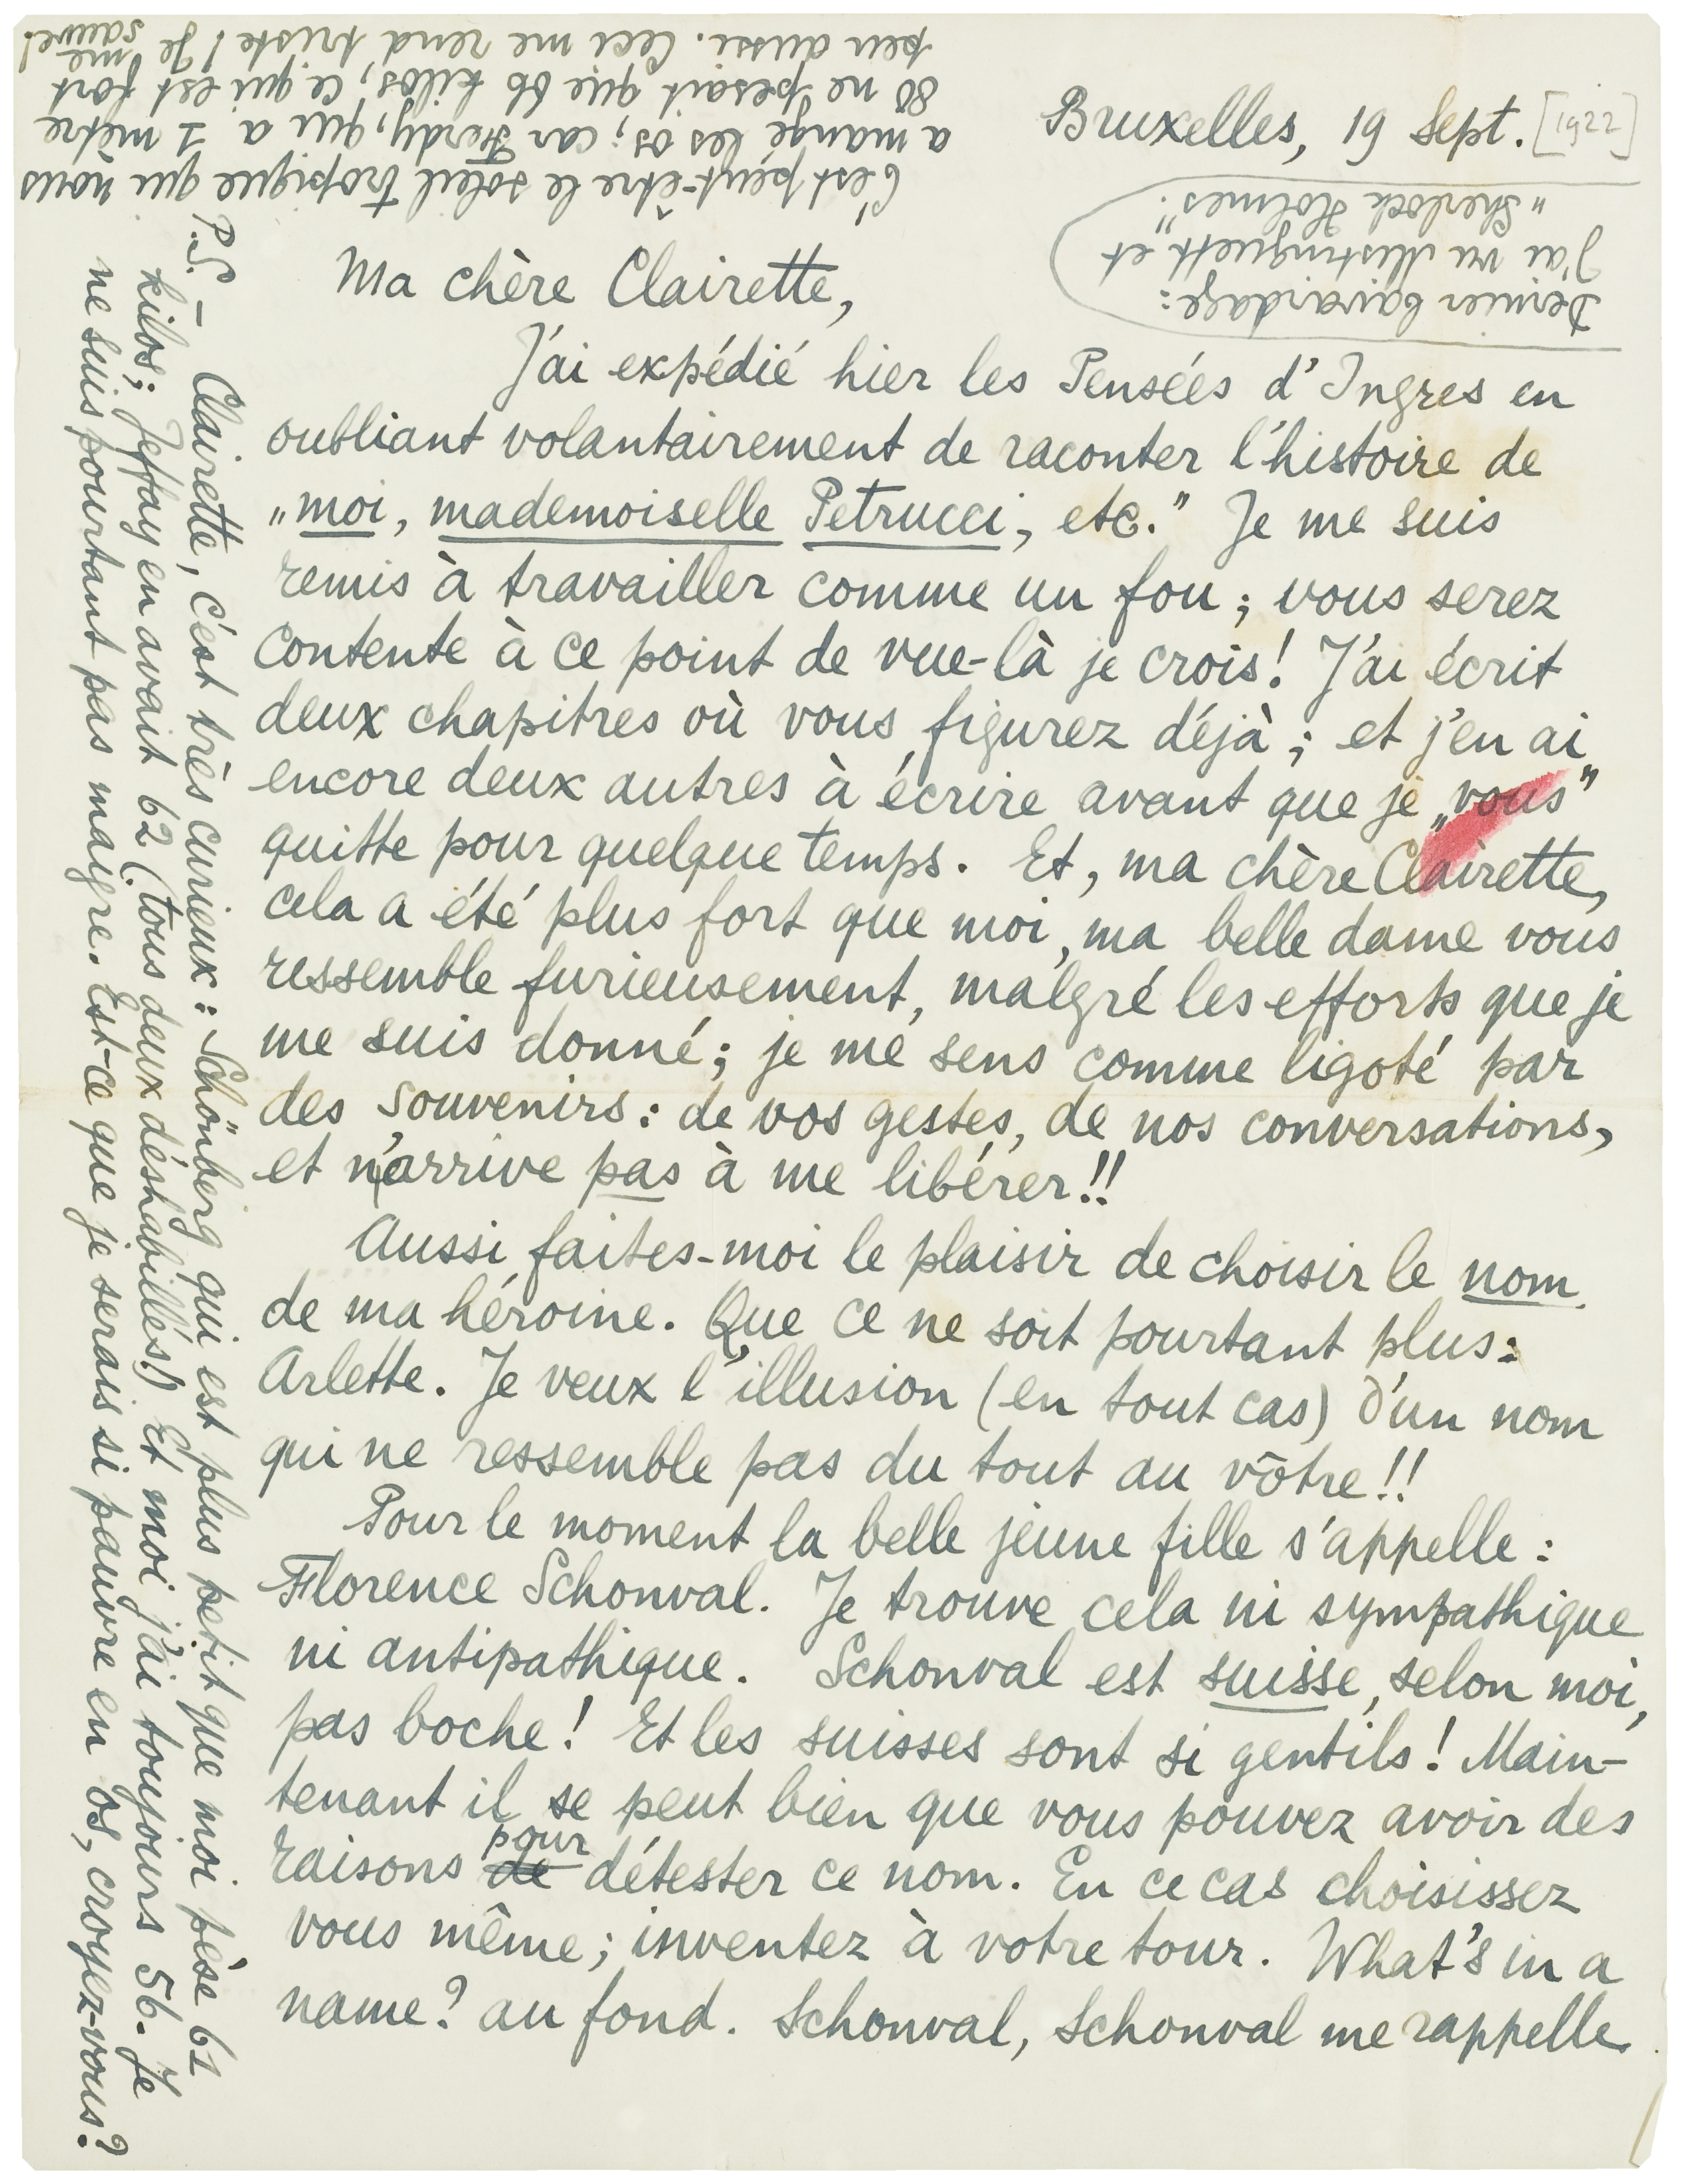 Bruxelles, 19 Sept. [1922]
Ma chère Clairette,
J'ai expédié hier les Pensées d'Ingres en
oubliant volantairement de raconter l'histoire de
„moi, mademoiselle Petrucci, etc.” Je me suis
remis à travailler comme un fou; vous serez
contente à ce point de vue-là je crois! J'ai écrit
deux chapitres où vous figurez déjà; et j'en ai
encore deux autres à écrire avant que je „vous”
quitte pour quelque temps. Et, ma chère Clairette,
cela a été plus fort que moi, ma belle dame vous
ressemble furieusement, malgré les efforts que je
me suis donné; je me sens comme ligoté par
des souvenirs: de vos gestes, de nos conversations,
et n'arrive pas à me libérer!!
Aussi faites-moi le plaisir de choisir le nom
de ma héroine. Que ce ne soit pourtant plus:
Arlette. Je veux l'illusion (en tout cas) d'un nom
qui ne ressemble pas du tout au vôtre!!
Pour le moment la belle jeune fille s'appelle:
Florence Schonval. Je trouve cela ni sympathique
ni antipathique. Schonval est suisse, selon moi,
pas boche! Et les suisses sont si gentils! Main-
tenant il se peut bien que vous pouvez avoir des
raisons de pour détester ce nom. En ce cas choisissez
vous même; inventez à votre tour. What's in a
name? au fond. Schonval, Schonval me rappelle
P.S. – Clairette, c'est très curieux: Schönberg qui est plus petit que moi pèse 61
kilos; Jeffay en avait 62 (tous deux déshabillés!) Et moi j'ai toujours 56. Je
ne suis pourtant pas maigre. Est-ce que je serais si pauvre en os, croyez-vous?
C'est peut-être le soleil tropique qui nous
a mangé les os; car Ferdy, qui a 1 mètre
80 ne pesait que 66 kilos, ce qui est fort
peu aussi. Ceci me rend triste! Je me sauve!
Dernier bavardage:
J'ai vu Mistinguett et
„Sherlock Holmes”.